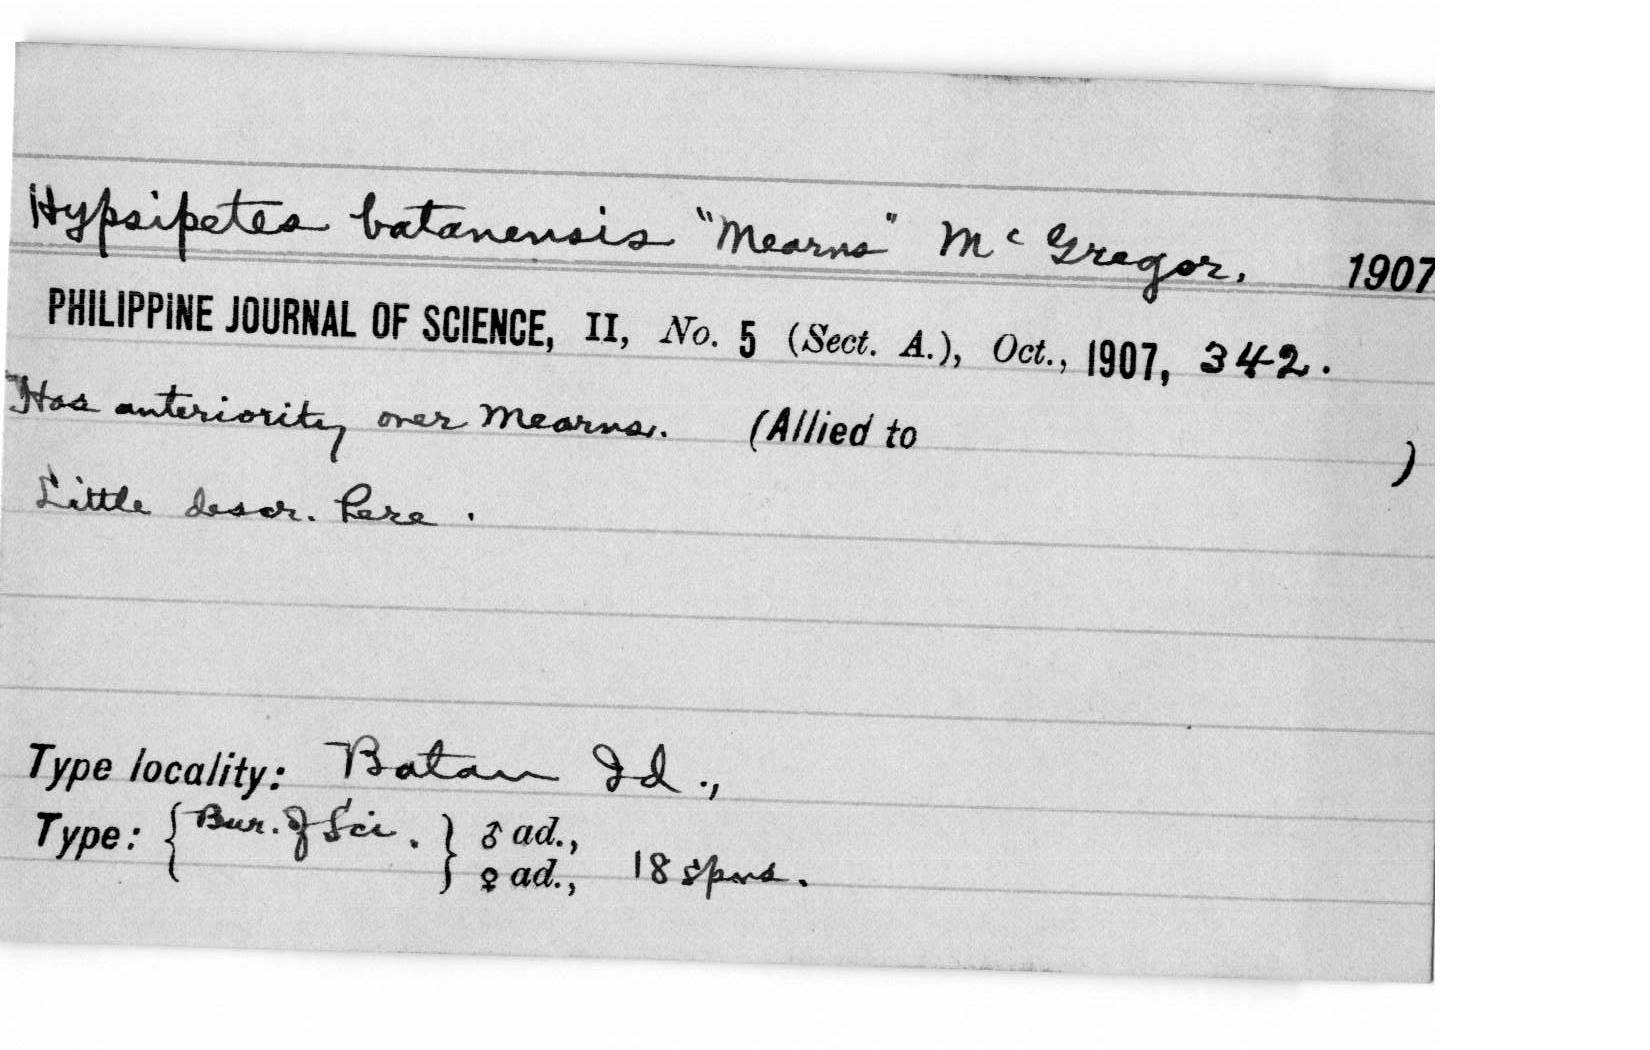 Hypsipetes batanensis "Mearns" Mc Gregor, 1907
PHILIPPINE JOURNAL OF SCIENCE, II, No. 5 (Sect. A.), Oct., 1907, 342.
Has anteriority over Mearns. (Allied to )
Little descr. here.
Type locality: Batan Id.,
Type: { Bur. of Sci. } ♂ ad.,
♀ ad., 18 spns.